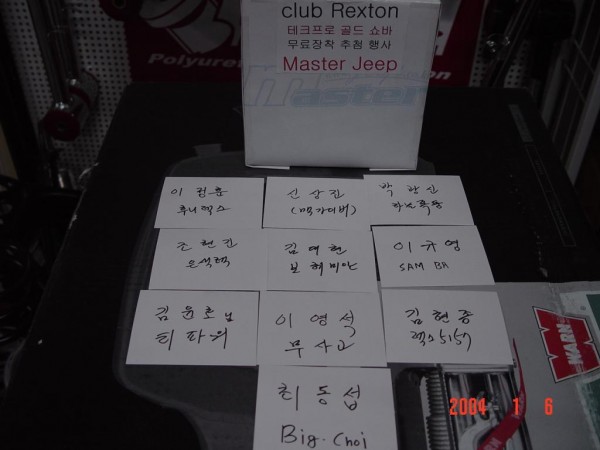 club Rexton
테크프로 골드 쇼바
무료장착 추첨 행사
Master Jeep
Polyuret
master
이 정훈
후니렉스
신상진
(메가더비)
박한신
하브폭풍
조현진
은색렉
김대현
보헤미안
이규영
SAM BA
김윤호님
티파위
이영석
무사고
김현중
렉스5157
최동섭
Big-choi
WARN
2004 1 6